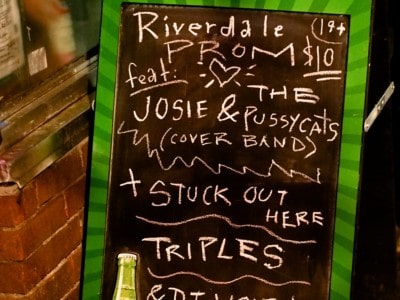 Riverdale (19+
PROM $10
feat: THE
JOSIE & PUSSYCATS
(COVER BAND)
+ STUCK OUT
HERE
TRIPLES